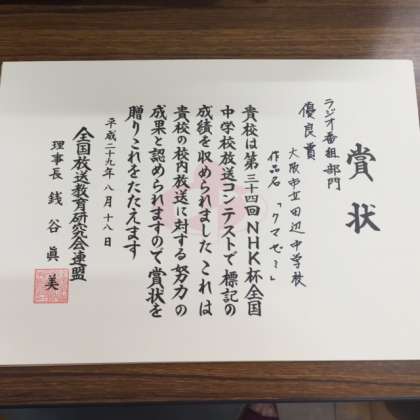 賞状
ラジオ番組部門
優良賞
大阪市立田辺中学校
作品名「クマゼミ」
貴校は第三十四回NHK杯全国
中学校放送コンテストで標記の
成績を収められました これは
貴校の校内放送に対する努力の
成果と認められますので賞状を
贈りこれをたたえます
平成二十九年八月十八日
全国放送教育研究会連盟
理事長 銭谷眞美